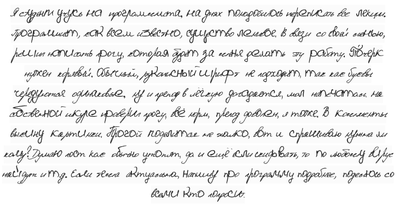 Я студент учусь на программиста, на днях понадобилось переписать все лекции.
Программист, как всем известно, существо ленивое. В связи со своей ленью,
решил написать прогу, которая будет за меня делать эту работу. Почерк
нужен кривой. Обычный, рукописный шрифт не подходит, так как буквы
чередуются одинаковые, ну и препод в лёгкую догадается, мол напечатал на
обычной
проверил прогу, всё норм, препод доволен, я тоже. В комплекте
вышлю картинки, Прогой поделиться не жалко, вот и спрашиваю нужна ли
кому? Думаю пост как обычно утопят, да и ещё если игнорировать, то по любому вирус
найдут и т.д. Если тема актуальна, напишу про программу подробнее, поделюсь со
всеми кто попросит.